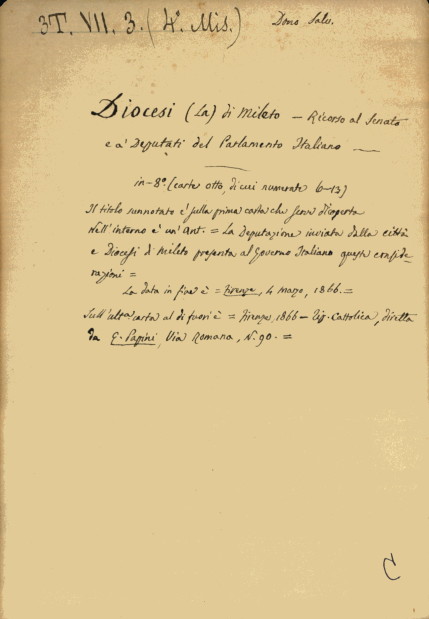 3T. VII. 3. (4º Mis.) Dono Salv.
Diocesi (La) di Mileto — Ricorso al Senato
e a' Deputati del Parlamento Italiano —
in-8º (carte otto, di cui numerate 6-13)
Il titolo sunnotato è sulla prima carta che serve d'coperta
Nell'interno è un' Ant. = La Deputazione inviata dalla città
e Diocesi di Mileto presenta al Governo Italiano queste conside-
razioni =
La data in fine è = Firenze, 4 marzo, 1866. =
Sull'ultª carta al di fuori è = Firenze, 1866 — Tip. Cattolica, diretta
da G. Papini, Via Romana, N. 90. =
C